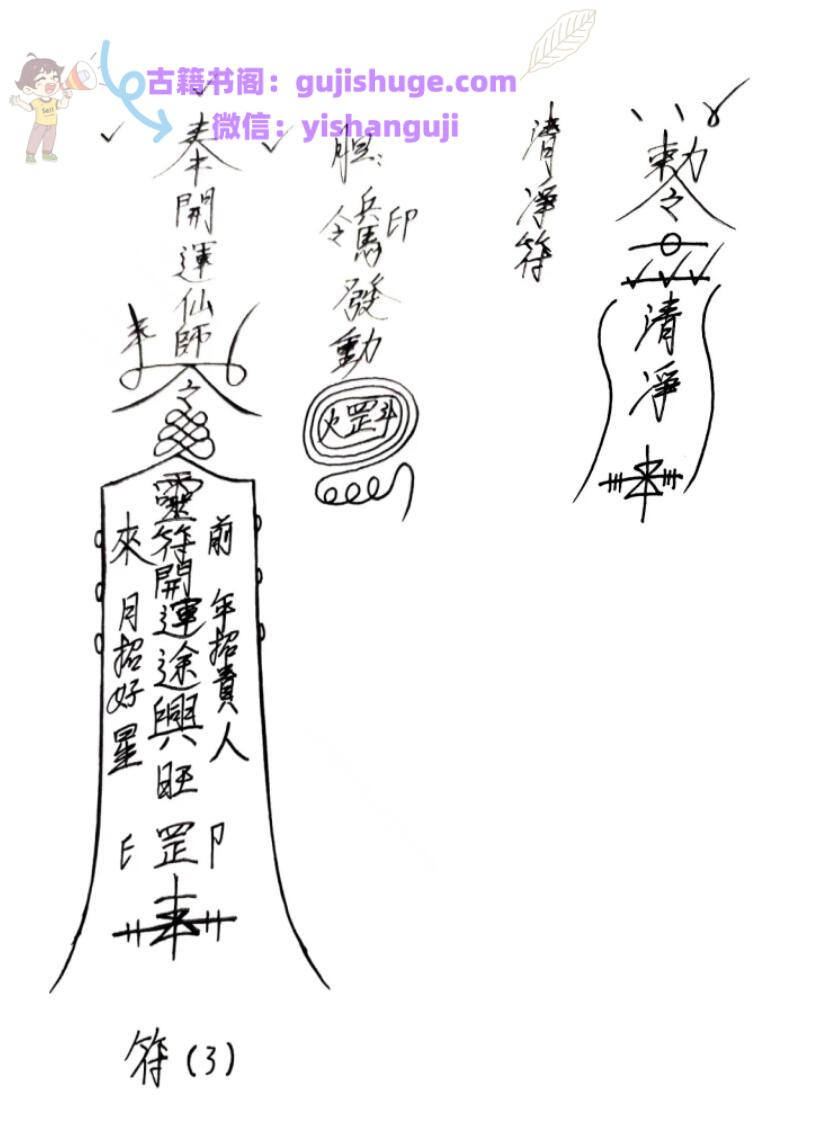 古籍书阁：gujishuge.com
微信：yishanguji
Sell
奉開運仙師
令
靈符開運途興旺
前年招貴人
來月招好星
罡
印
符(3)
胆：
令兵馬印發動
火罡斗
清淨符
勅令
清淨